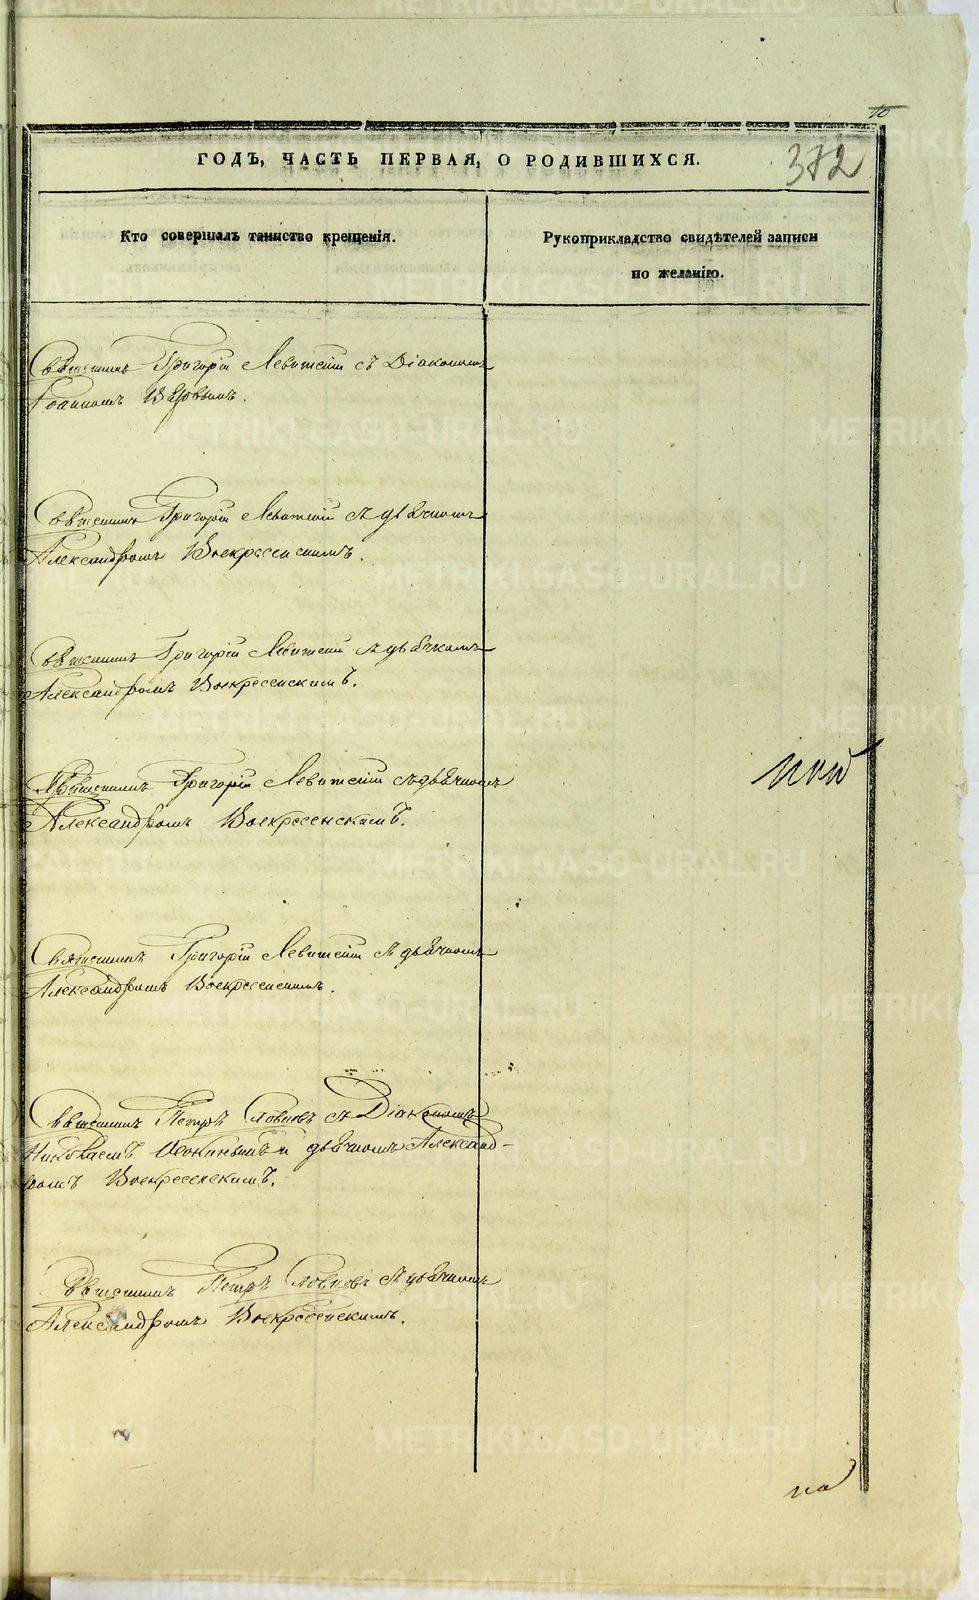 10
372
ГОДЪ, ЧАСТЬ ПЕРВАЯ, О РОДИВШИХСЯ.
Кто совершалъ таинство крещенія.
Рукоприкладство свидѣтелей записи
по желанію.
Священникъ Григорій Левитскій съ Діакономъ
Іоанномъ
Священникъ Григорій Левитскій съ дьячкомъ
Александромъ Воскресенскимъ.
Священникъ Григорій Левитскій съ дьячкомъ
Александромъ Воскресенскимъ.
Священникъ Григорій Левитскій съ дьячкомъ
Александромъ Воскресенскимъ.
Священникъ Григорій Левитскій съ дьячкомъ
Александромъ Воскресенскимъ.
Священникъ Петръ Словцовъ съ Діакономъ
Николаемъ и дьячкомъ Александ-
ромъ Воскресенскимъ.
Священникъ Петръ Словцовъ съ дьячкомъ
Александромъ Воскресенскимъ.
METRIKI.GASO-URAL.RU